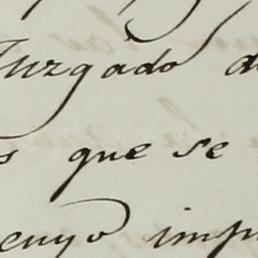 Juzgado de
s que se
cuyo imp